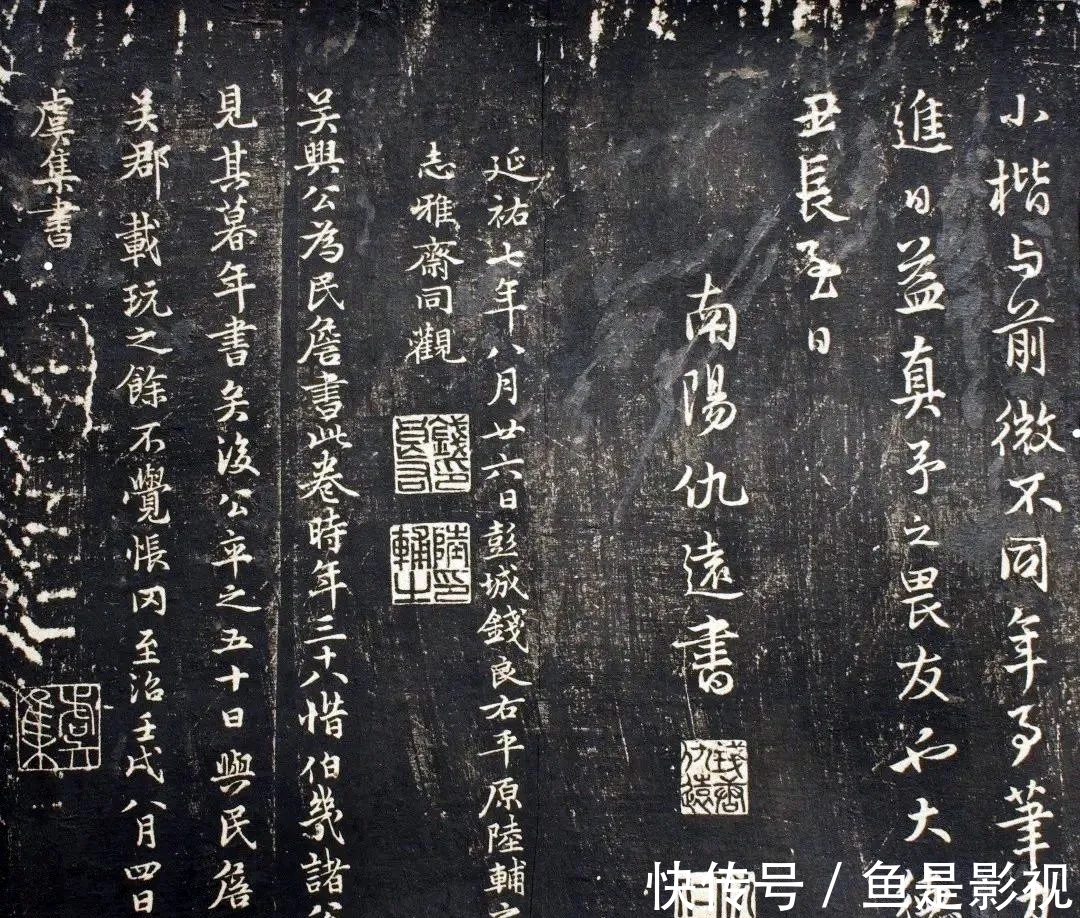 小楷与前微不同年多筆
進日益真予之畏友也大德
丑長至日
南陽仇遠書
仇遠
延祐七年八月廿六日彭城錢良右平原陸輔之
志雅齋同觀
錢良右印
陸輔之印
吴興公為民瞻書此卷時年三十八惜伯幾諸公
見其暮年書矣後公卒之五十日與民瞻
吴郡載玩之餘不覺悵罔至治壬戌八月四日
虞集書
虞集
快传号 / 鱼是影视